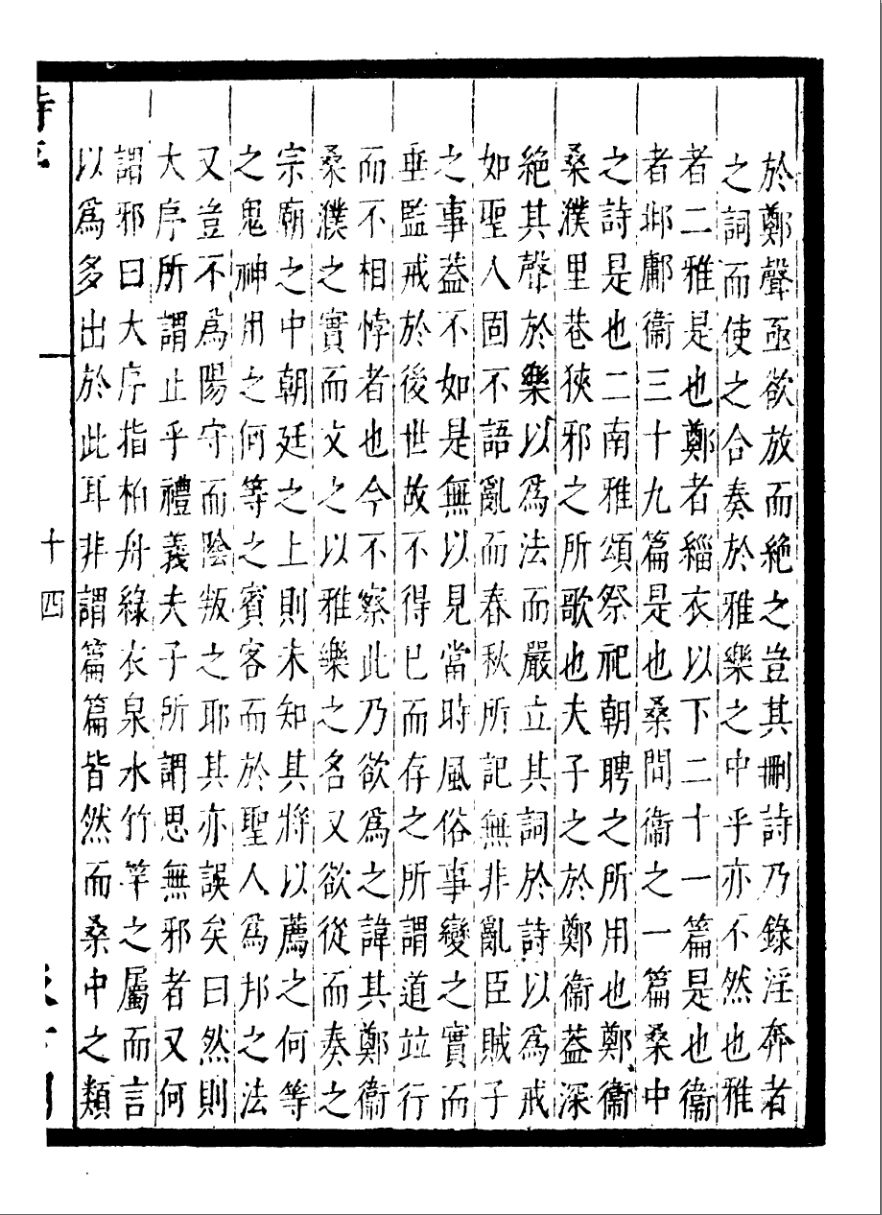 於鄭聲亟欲放而絶之豈其刪詩乃錄淫奔者
之詞而使之合奏於雅樂之中乎亦不然也雅
者二雅是也鄭者緇衣以下二十一篇是也衞
者邶鄘衞三十九篇是也桑間衞之一篇桑中
之詩是也二南雅頌祭祀朝聘之所用也鄭衞
桑濮里巷狹邪之所歌也夫子之於鄭衞葢深
絶其聲於樂以爲法而嚴立其詞於詩以爲戒
如聖人固不語亂而春秋所記無非亂臣賊子
之事葢不如是無以見當時風俗事變之實而
垂監戒於後世故不得已而存之所謂道並行
而不相悖者也今不察此乃欲爲之諱其鄭衞
桑濮之實而文之以雅樂之名又欲從而奏之
宗廟之中朝廷之上則未知其將以薦之何等
之鬼神用之何等之賓客而於聖人爲邦之法
又豈不爲陽守而陰叛之耶其亦誤矣曰然則
大序所謂止乎禮義夫子所謂思無邪者又何
謂邪曰大序指柏舟綠衣泉水竹竿之屬而言
以爲多出於此耳非謂篇篇皆然而桑中之類
十四